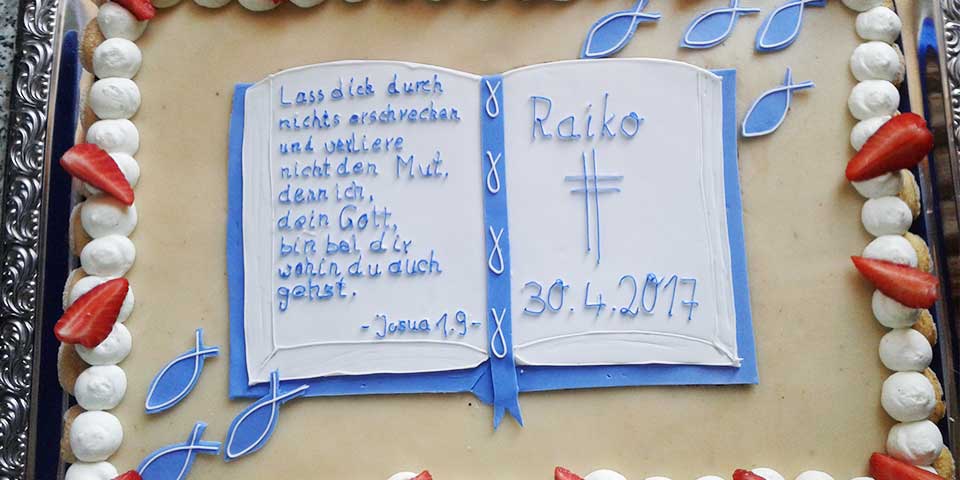 Lass dich durch
nichts erschrecken
und verliere
nicht den Mut,
denn ich,
dein Gott,
bin bei dir
wohin du auch
gehst.
- Josua 1,9 -
Raiko
30.4.2017